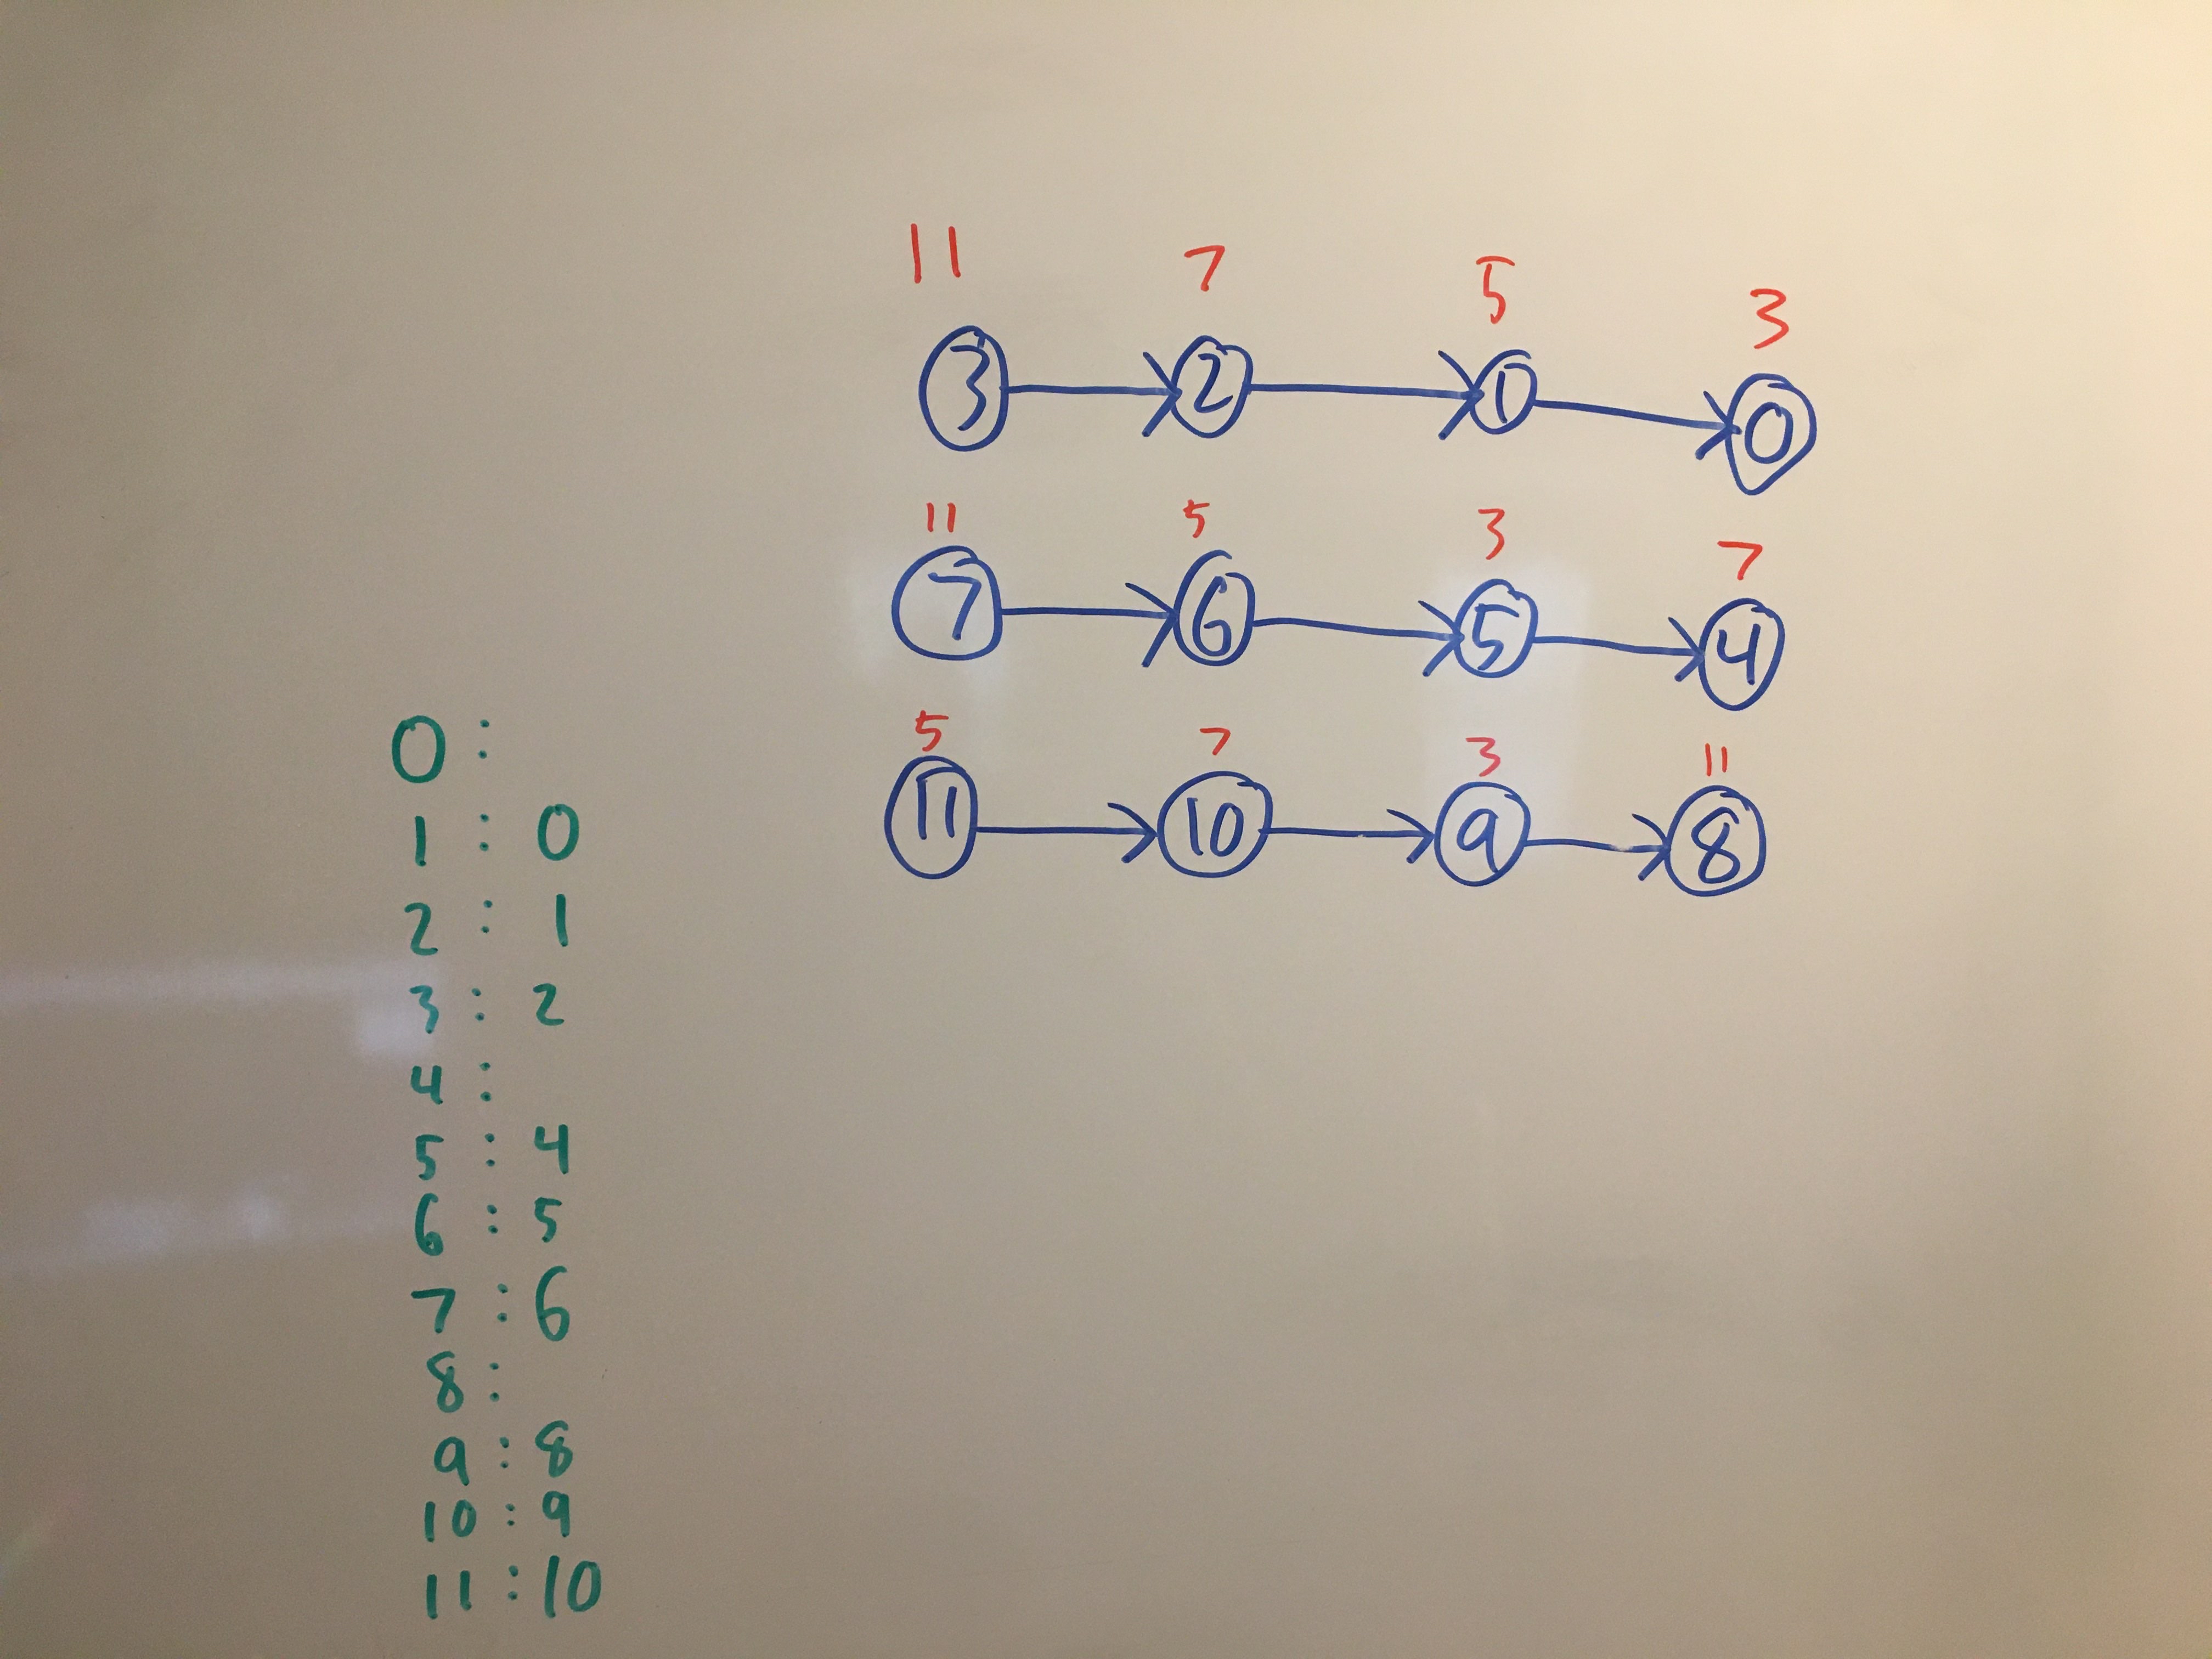 11 7 5 3
3 2 1 0
11 5 3 7
7 6 5 4
5 7 3 11
11 10 9 8
0 :
1 : 0
2 : 1
3 : 2
4 :
5 : 4
6 : 5
7 : 6
8 :
9 : 8
10 : 9
11 : 10